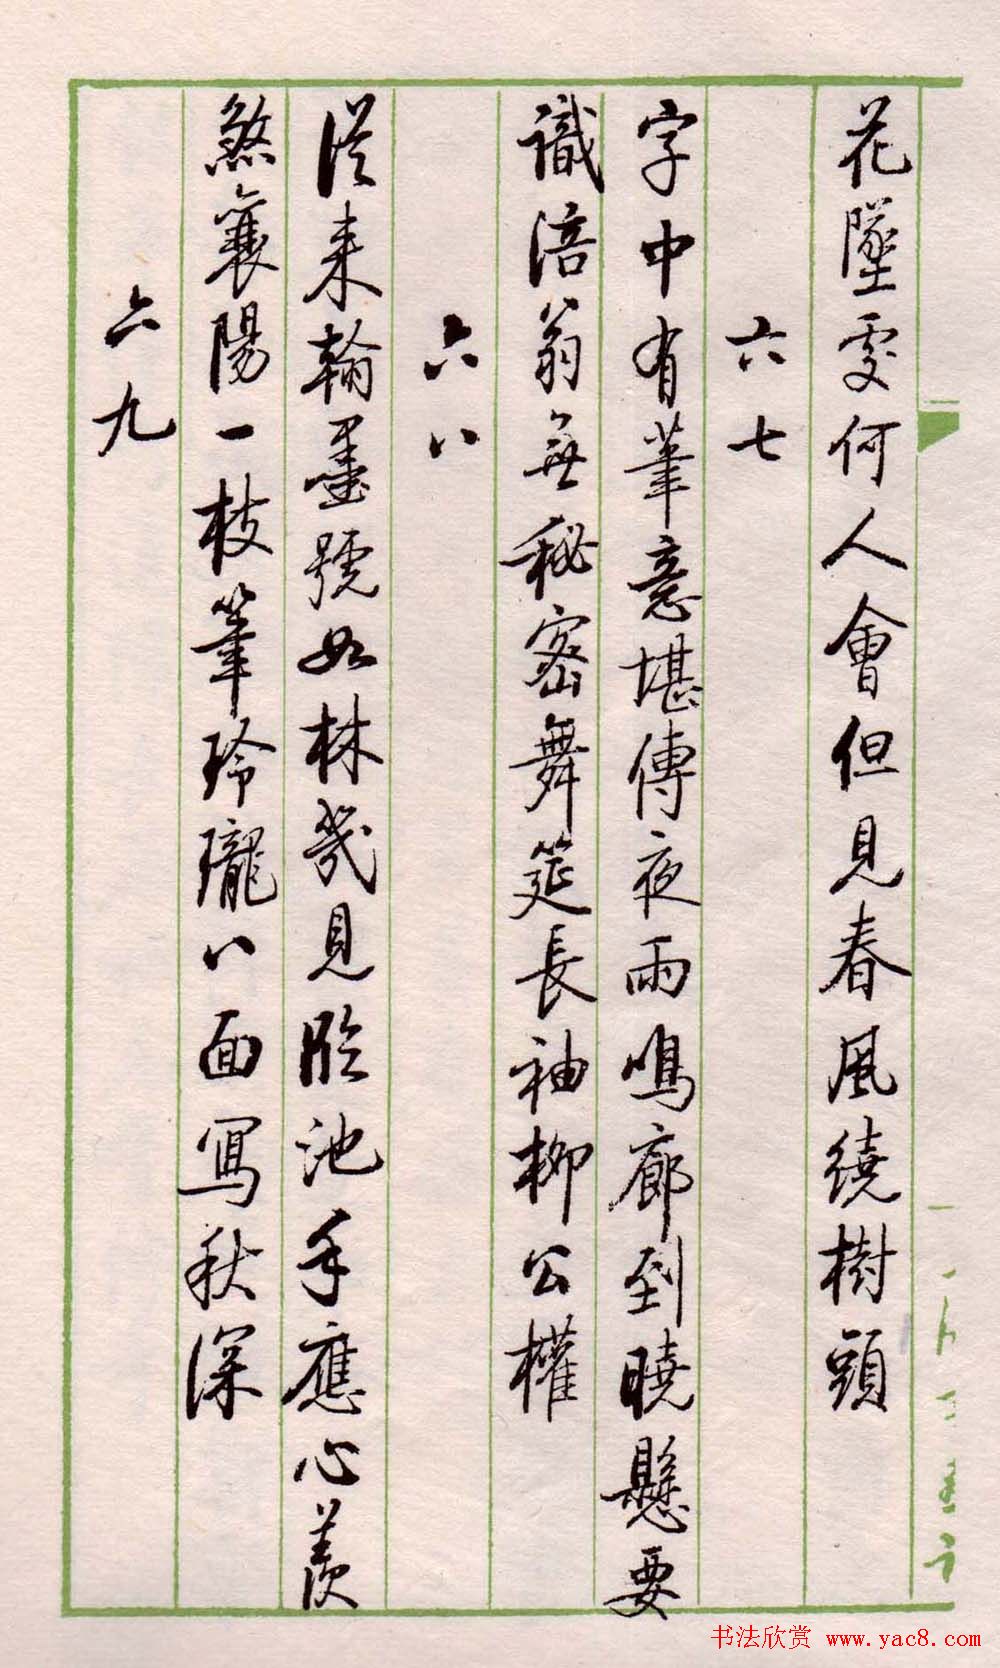 花墜處何人會但見春風繞樹頭
六七
字中有筆意堪傳夜雨鳴廊到曉懸要
識涪翁無秘密舞筵長袖柳公權
六八
從来翰墨號如林幾見臨池手應心羨
煞襄陽一枝筆玲瓏八面寫秋深
六九
书法欣赏 www.yac8.com